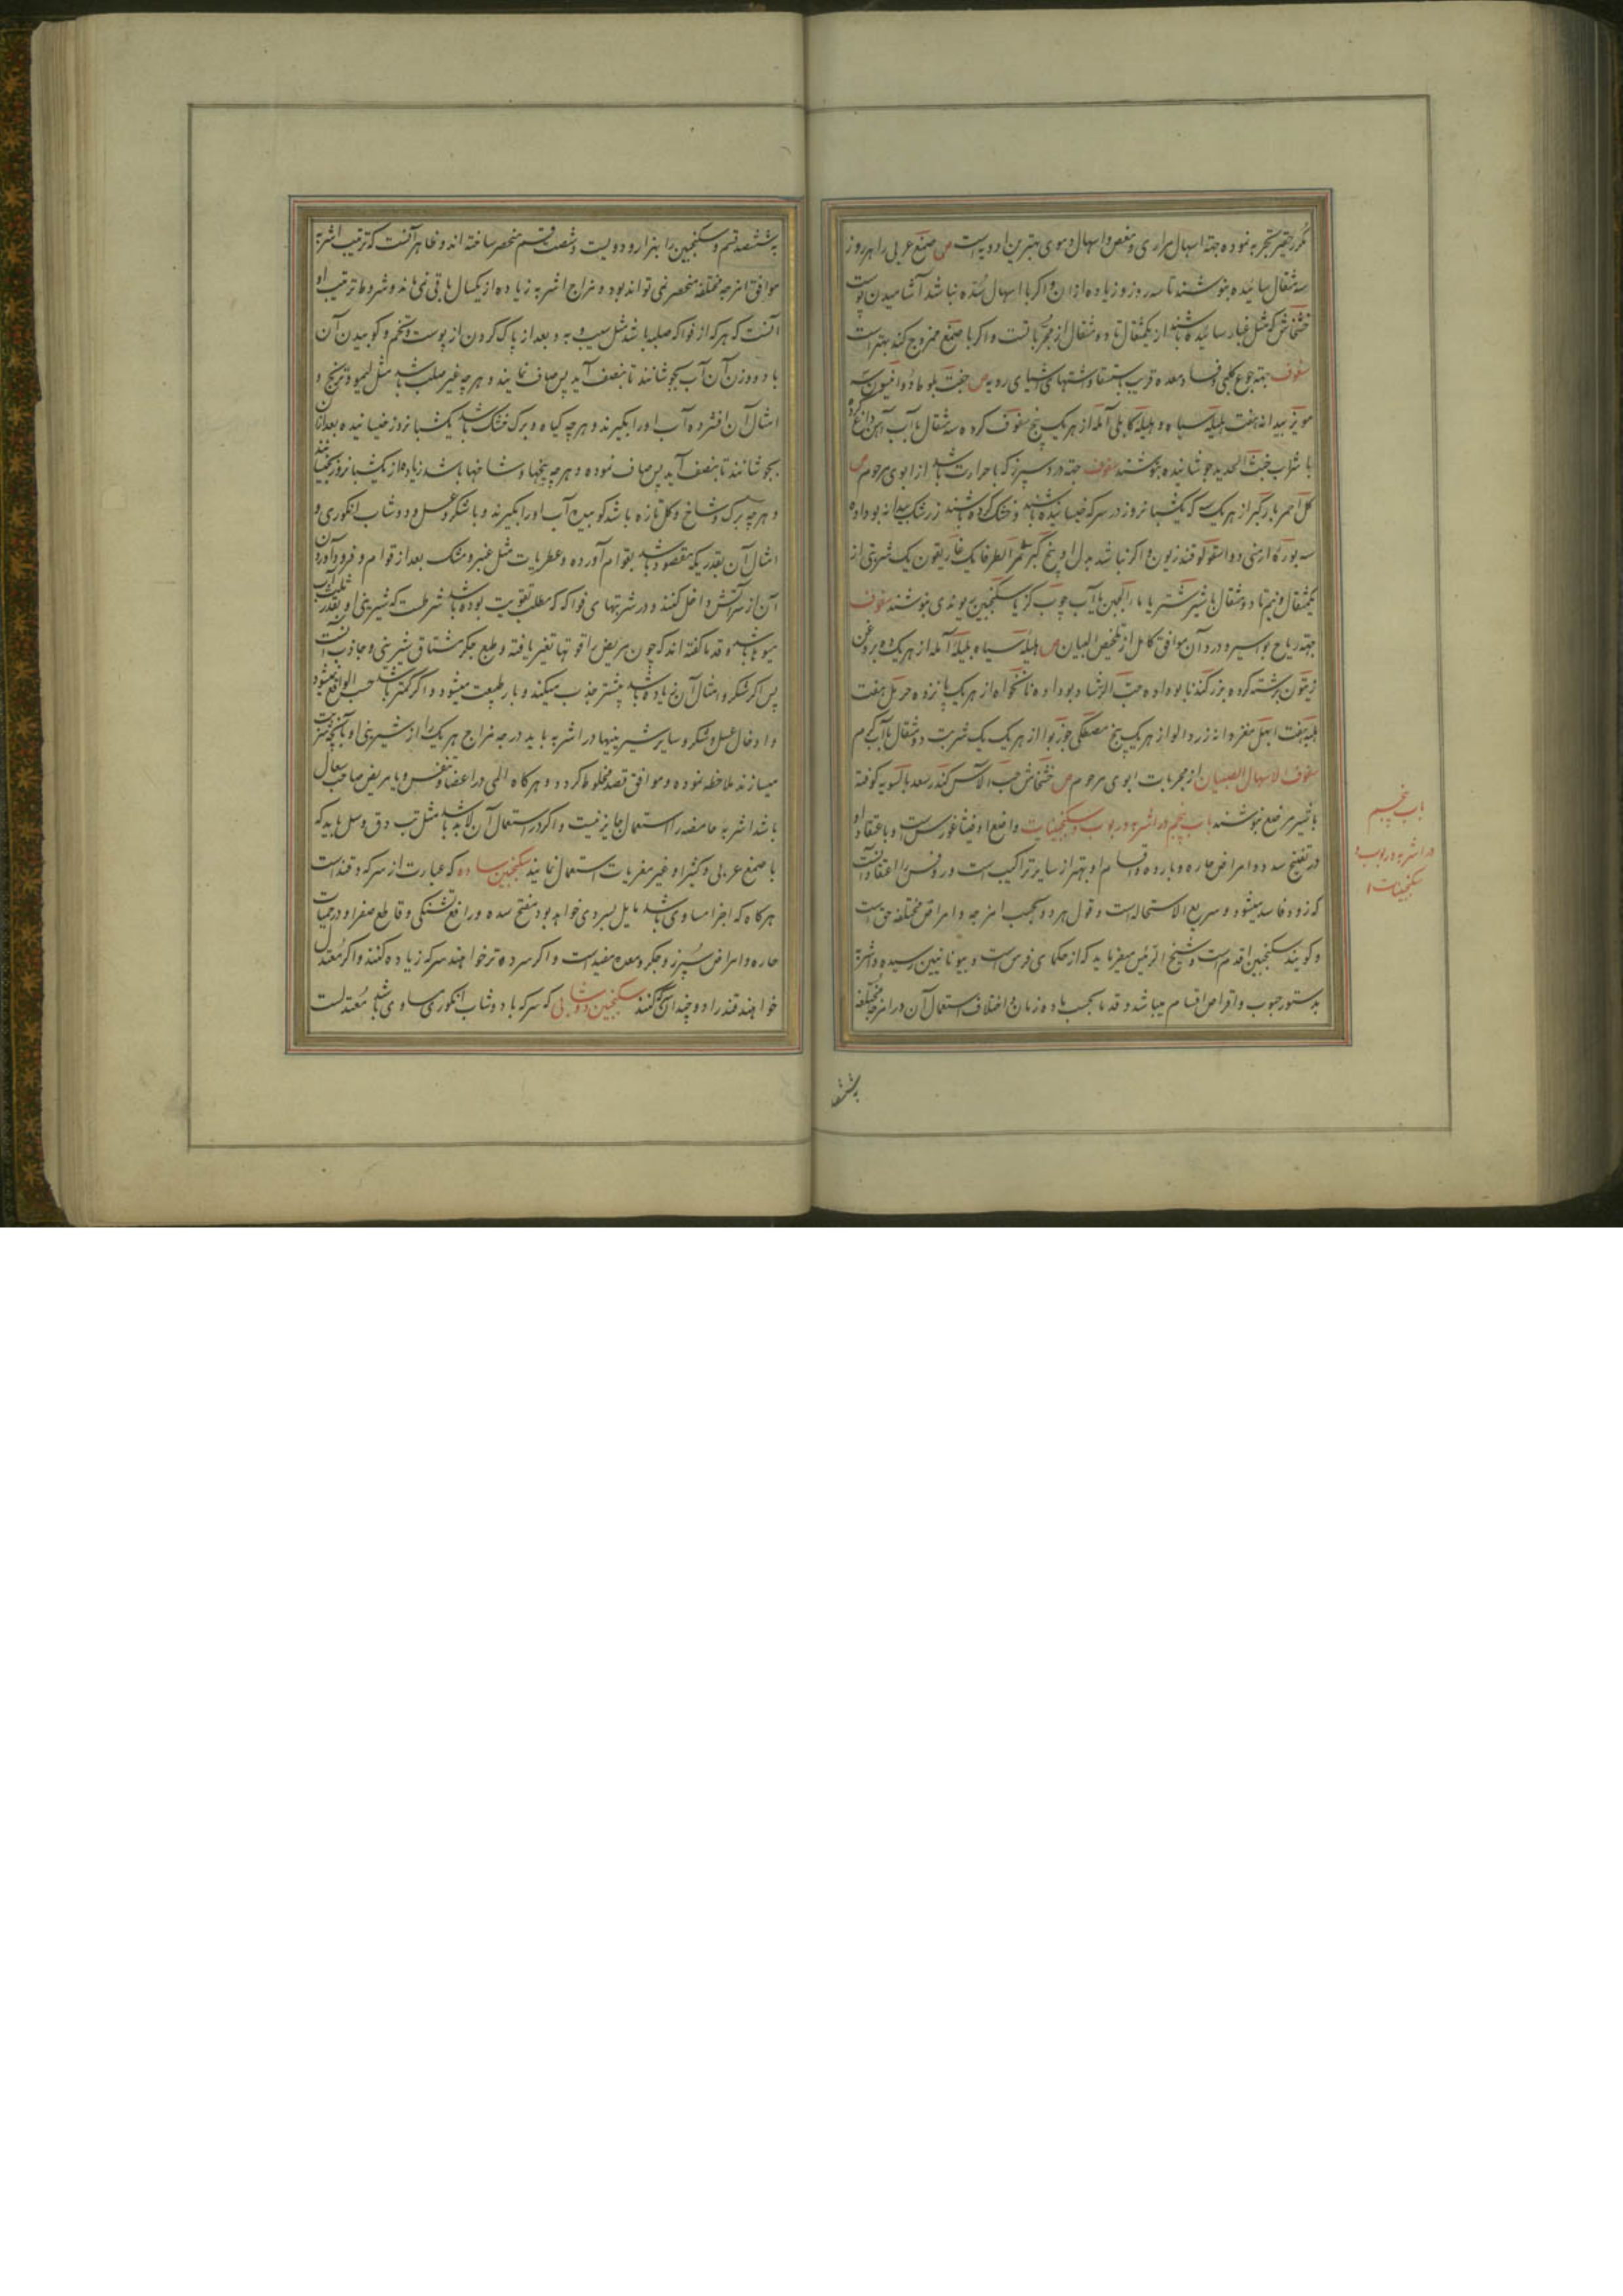 مکرر حقیر تجربه نموده جهة اسهال مراری و مغص و اسهال دموی بهترین ادویه است ص صمغ عربی را هر روز
سه مثقال سائیده بنوشند تا سه روز و زیاده ازان و اکر با اسهال سده نباشد آشامیدن پوست
خشخاش که مثل غبار سائیده باشند از یکمثقال تا دو مثقال از مجربانست و اکر با صمغ ممزوج کنند بهتر است
سفوف جهة جوع کلبی و فساد معده قریب باستسقا و اشتهای اشیای ردیه ص جفت بلوط دو انیسون سه
مویز بیدانه هفت هلیله سیاه و هلیله کابلی آمله از هریک پنج سفوف کرده سه مثقال با آب آهن داغ کرده
با شراب خبث الحدید جوشانیده بنوشند سفوف جهة درد سپرز که با حرارت باشد از ابوی مرحوم ص
کل احمر بارکبر از هریک که یکشبانروز در سرکه خیسانیده باشند و خشک کرده باشند زرشک بیدانه بوداده
سه بوره ارمنی دو اسقولوقندریون و اکر نباشد بدل او بیخ کبر ثمر الطرفا یک غاریقون یک شربتی از
یکمثقال و نیم تا دو مثقال با شیر شتر یا با آب چوب کز یا سکنجبین ریوندی بنوشند سفوف
جهة ریاح بواسیر و درد آن موافق کامل از تلخیص البیان ص هلیله سیاه بلیله آمله از هریک ده بروغن
زیتون برشته کرده بزر کندنا بوداده حب الرشاد بوداده نانخواه از هریک پانزده حرمل هفت
هلیه هفت ابهل مغز دانه زردالو از هریک پنج مصطکی جوزبوا از هریک یک شربت دو مثقال با آب کرم
سفوف لاسهال الصبیان از مجربات ابوی مرحوم ص خشخاش حب الآس کندر سعد بالسویه کوفته
با شیر مرضع بنوشند باب پنجم در اشربه و ربوب و سکنجبینات واضع او فیثاغورس است و باعتقاد او
در تفتیح سدد و امراض حاره و بارده و اقسام او بهتر از سایر تراکیب است و روفس را اعتقاد آنست
که زود فاسد میشود و سریع الاستحاله است و قول هر دو بحسب امزجه و امراض مختلفه حق است
و کویند سکنجبین اقدم است و شیخ الرئیس میفرماید که از حکمای فرس است و بیونانیین رسیده و اشربه
بدستور حبوب و اقراص اقسام میباشد و قدما بحسب ماده و زمان و اختلاف استعمال آن در امزجه مختلفه
بششصد
باب پنجم
در اشربه و ربوب و
سکنجبینات
بششصد قسم و سکنجبین را بهزار و دویست و شصت قسم منحصر ساخته اند و ظاهر آنست که ترتیب اشربه
موافق امزجه مختلفه منحصر نمی تواند بود و مزاج اشربه زیاده از یکسال باقی نمی ماند و شروط ترتیب او
آنست که هرکه از فواکه صلبه باشد مثل سیب و به و بعد از پاک کردن از پوست و تخم و کوبیدن آن
با دو وزن آن آب بجوشانند تا بنصف آید پس صاف نمایند و هرچه غیر صلب باشد مثل لیمو و ترنج و
امثال آن افشرده آب او را بکیرند و هرچه کیاه و برک خشک باشد یکشبانروز خیسانیده بعد ازان
بجوشانند تا بنصف آید پس صاف نموده و هرچه بیخها و شاخها باشد زیاده از یکشبانروز بخیسانند
و هرچه برک و شاخ و کل تازه باشد کوبیده آب او را بکیرند و با شکر و عسل و دوشاب انکوری و
امثال آن بقدریکه مقصود باشد بقوام آورده و عطریات مثل عنبر و مشک بعد از قوام و فرود آوردن
آن از سر آتش داخل کنند و در شربتهای فواکه که مطلب تقویت بوده باشد شرطست که شیرینی او بقدر ثلث آب
میوها باشد و قدما کفته اند که چون مریض را قوتها تغیر یافته و طبع جکر مشتاق شیرینی و جاذب آنست
پس اکر شکر و امثال آن زیاده باشد بیشتر جذب میکند و بار طبیعت میشود و اکر کمتر باشد حسب الواقع میشود
و ادخال عسل و شکر و سایر شیرینیها در اشربه باید درجه مزاج هریک را از شیرینی او بآنچه شربت
میسازند ملاحظه نموده و موافق قصد مخلوط کردد و هرکاه المی در اعضاء تنفس و یا مریض صاحب سعال
باشد اشربه حامضه را استعمال جایز نیست و اکر در استعمال آن لابد باشد مثل تب دق و سل باید که
با صمغ عربی و کثیرا و غیر مغریات استعمال نمایند سکنجبین ساده که عبارت از سرکه و قند است
هرکاه که اجزا مساوی باشد مایل بسردی خواهد بود مفتح سده و رافع تشنکی و قاطع صفرا و در حمیات
حاره و امراض سپرز و جکر و معده مفید است و اکر سردتر خواهند سرکه زیاده کنند و اکر معتدل
خواهند قند را دو چندان سرکه کنند سکنجبین دوشابی که سرکه با دوشاب انکوری مساوی باشد معتدلست